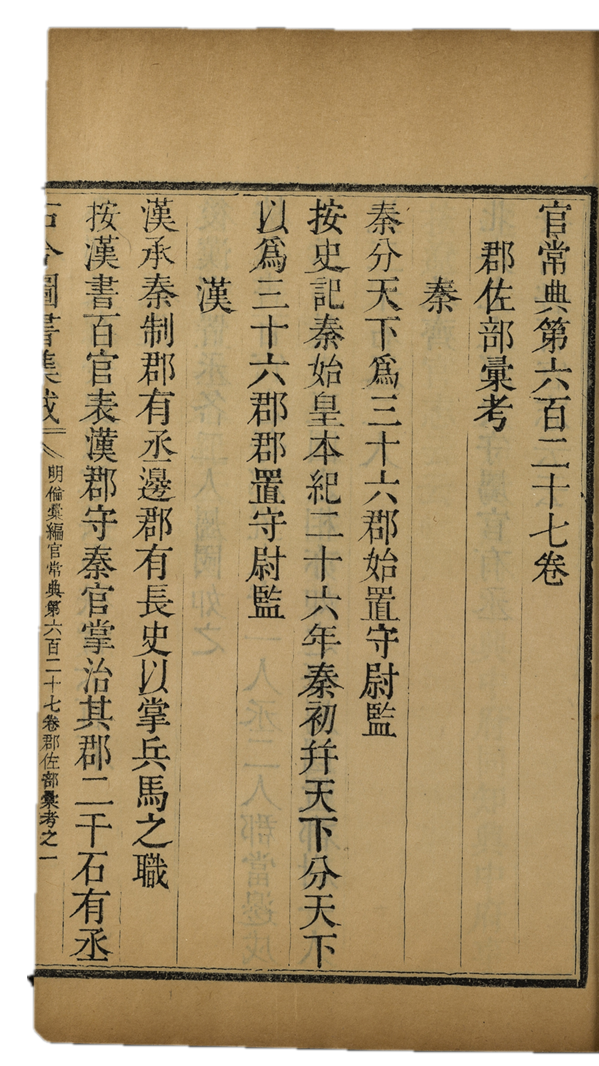 官常典第六百二十七卷
郡佐部彙考
秦
秦分天下爲三十六郡始置守尉監
按史記秦始皇本紀二十六年秦初幷天下分天下
以爲三十六郡郡置守尉監
漢
漢承秦制郡有丞邊郡有長史以掌兵馬之職
按漢書百官表漢郡守秦官掌治其郡二千石有丞
古今圖書集成
明倫彙編官常典第六百二十七卷郡佐部彙考之一